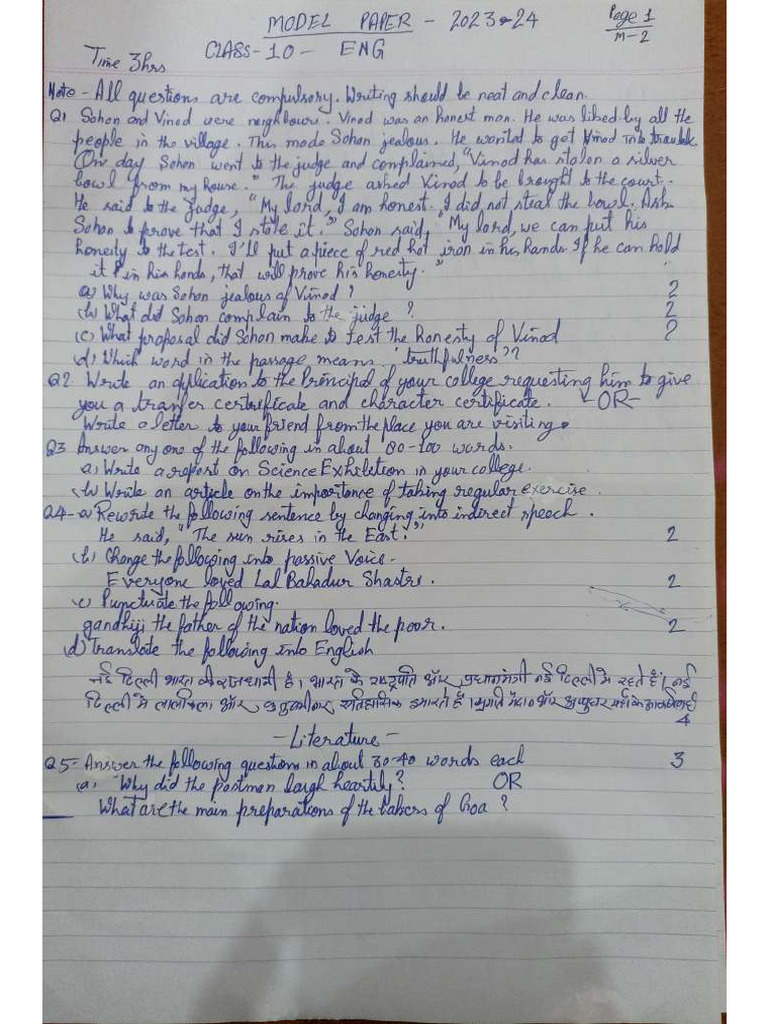 MODEL PAPER - 2023-24
Page 1
M-2
Time 3hrs
CLASS-10- ENG
Note - All questions are compulsory. Writing should be neat and clean.
Q1 Sohan and Vinod were neighbours. Vinod was an honest man. He was liked by all the
people in the village. This made Sohan jealous. He wanted to get Vinod into trouble.
One day Sohan went to the judge and complained, "Vinod has stolen a silver
bowl from my house." The judge asked Vinod to be brought to the court.
He said to the judge, "My lord, I am honest. I did not steal the bowl. Ask
Sohan to prove that I stole it." Sohan said, "My lord, we can put his
honesty to the test. I'll put a piece of red hot iron in his hands. If he can hold
it in his hands, that will prove his honesty."
a) Why was Sohan jealous of Vinod ? 2
(b) What did Sohan complain to the judge ? 2
(c) What proposal did Sohan make to test the honesty of Vinod 2
(d) Which word in the passage means 'truthfulness'?
Q2. Write an application to the Principal of your college requesting him to give
you a tranfer certificate and character certificate. -OR-
Write a letter to your friend from the place you are visiting.
Q3 Answer any one of the following in about 80-100 words.
a) Write a report on Science Exhibition in your college.
(b) Write an article on the importance of taking regular exercise.
Q4- a) Rewrite the following sentence by changing into indirect speech.
He said, "The sun rises in the East." 2
(b) Change the following into passive Voice-
Everyone loved Lal Bahadur Shastri. 2
c) Punctuate the following.
gandhiji the father of the nation loved the poor. 2
(d) Translate the following into English
नई दिल्ली भारत की राजधानी है। भारत के राष्ट्रपति और प्रधानमंत्री नई दिल्ली में रहते हैं। नई
दिल्ली में लालकिला और कुतुबमीनार ऐतिहासिक इमारतें हैं। प्रगति मैदान और
4
-Literature-
Q5- Answer the following questions in about 30-40 words each 3
(a) Why did the postman laugh heartily? OR
What are the main preparations of the bakers of Goa ?